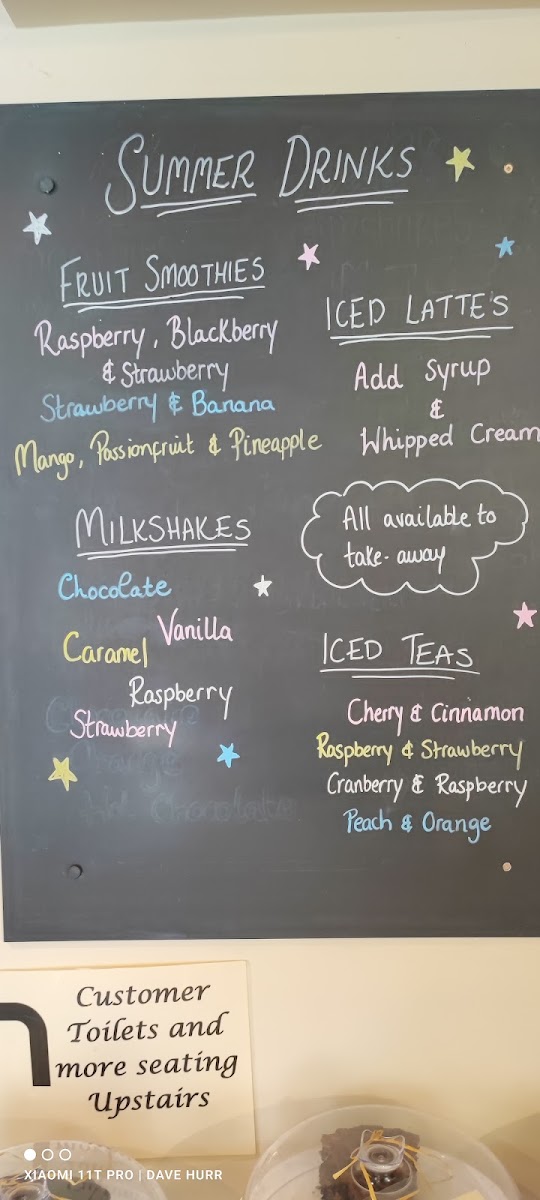 SUMMER DRINKS
FRUIT SMOOTHIES
Raspberry, Blackberry
& Strawberry
Strawberry & Banana
Mango, Passionfruit & Pineapple
MILKSHAKES
Chocolate
Vanilla
Caramel
Raspberry
Strawberry
ICED LATTE'S
Add Syrup
&
Whipped Cream
All available to
take-away
ICED TEAS
Cherry & Cinnamon
Raspberry & Strawberry
Cranberry & Raspberry
Peach & Orange
Customer
Toilets and
more seating
Upstairs
XIAOMI 11T PRO | DAVE HURR